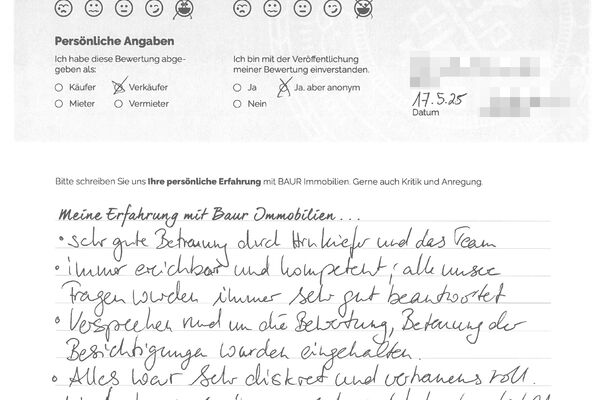 Persönliche Angaben
Ich habe diese Bewertung abge-
geben als:
Käufer
Verkäufer
Mieter
Vermieter
Ich bin mit der Veröffentlichung
meiner Bewertung einverstanden.
Ja
Ja, aber anonym
Nein
17.5.25
Datum
Bitte schreiben Sie uns Ihre persönliche Erfahrung mit BAUR Immobilien. Gerne auch Kritik und Anregung.
Meine Erfahrung mit Baur Immobilien...
• sehr gute Betreuung durch Hrn Kiefer und das Team
• immer erreichbar und kompetent; alle unsere
Fragen wurden immer sehr gut beantwortet
• Versprechen rund um die Bewertung, Betreuung der
Besichtigungen wurden eingehalten.
• Alles war sehr diskret und vertrauensvoll.